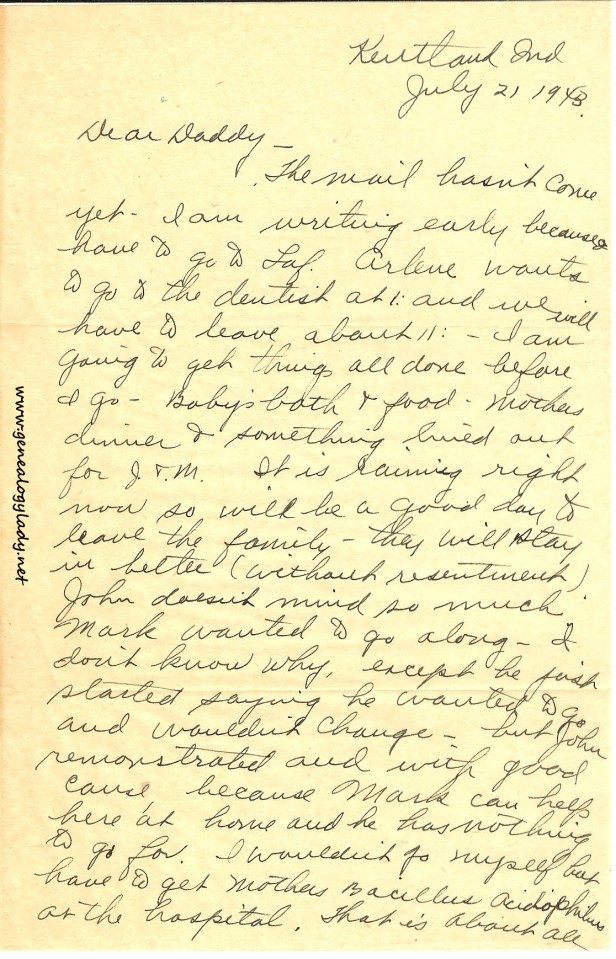 Kentland Ind
July 21 1943.
Dear Daddy –
The mail hasn't come
yet – I am writing early because
have to go to Laf. Arlene wants
to go to the dentist at 1: and we will
have to leave about 11: – I am
going to get things all done before
I go – Baby's bath & food – Mothers
dinner & something lined out
for J. & M. It is raining right
now so will be a good day to
leave the family – they will stay
in better (without resentment)
John doesn't mind so much
Mark wanted to go along – I
don't know why, except he just
started saying he wanted to go
and wouldn't change – but John
remonstrated and with good
cause, because Mark can help
here at home and he has nothing
to go for. I wouldn't go myself but
have to get Mothers Bacillus Acidiophilus
at the hospital. That is about all
www.genealogylady.net